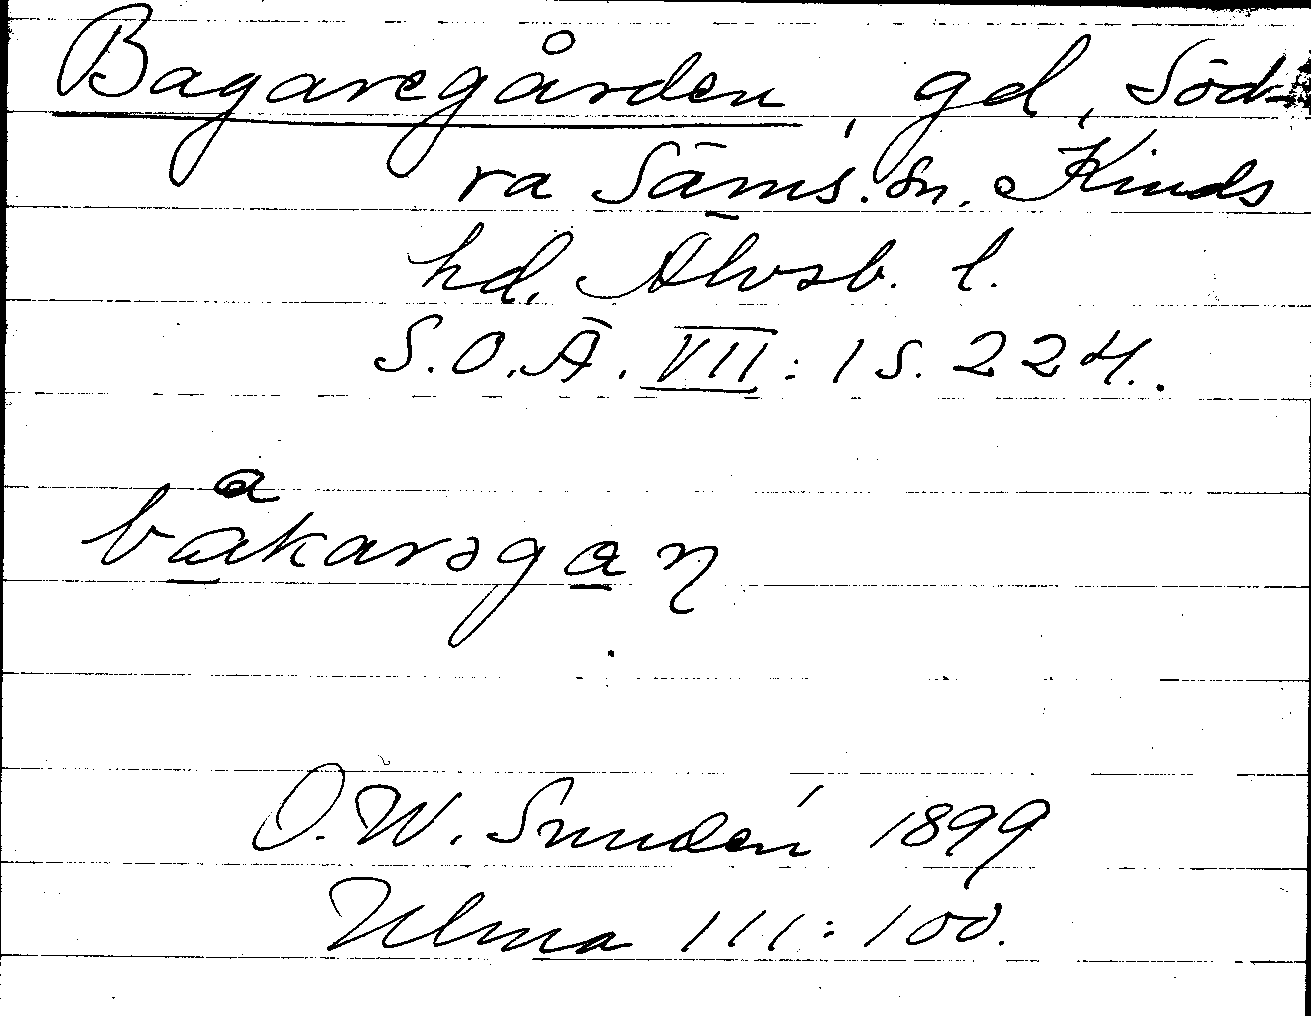 Bagaregården, gd, Söd-
ra Säms. sn. Kinds
hd. Älvsb. l.
S.O.Ä. VII: 1 s. 224.
a
båkarəgaŋ
O.W. Sundén 1899
Ulma 111:100.